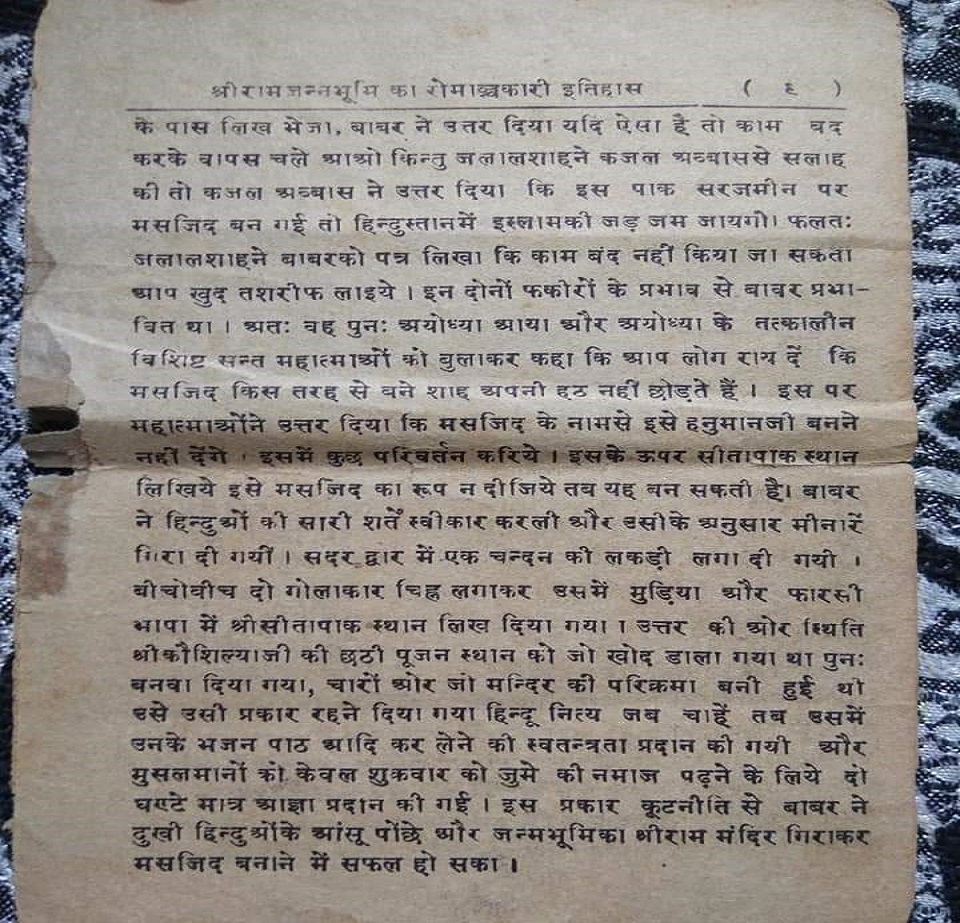 श्रीरामजन्मभूमि का रोमाञ्चकारी इतिहास ( ६ )
के पास लिख भेजा, बाबर ने उत्तर दिया यदि ऐसा है तो काम बद
करके वापस चले आओ किन्तु जलालशाहने कजल अब्बाससे सलाह
की तो कजल अब्बास ने उत्तर दिया कि इस पाक सरजमीन पर
मसजिद बन गई तो हिन्दुस्तानमें इस्लामकी जड़ जम जायगी। फलतः
जलालशाहने बाबरको पत्र लिखा कि काम बंद नहीं किया जा सकता
आप खुद तशरीफ लाइये । इन दोनों फकीरों के प्रभाव से बाबर प्रभा-
वित था । अतः वह पुनः अयोध्या आया और अयोध्या के तत्कालीन
विशिष्ट सन्त महात्माओं को बुलाकर कहा कि आप लोग राय दें कि
मसजिद किस तरह से बने शाह अपनी हठ नहीं छोडते हैं । इस पर
महात्माओंने उत्तर दिया कि मसजिद के नामसे इसे हनुमानजी बनने
नहीं देंगे । इसमें कुछ परिवर्तन करिये । इसके ऊपर सीतापाक स्थान
लिखिये इसे मसजिद का रूप न दीजिये तब यह बन सकती है। बाबर
ने हिन्दुओं की सारी शर्तें स्वीकार करली और उसीके अनुसार मीनारें
गिरा दी गयीं । सदर द्वार में एक चन्दन की लकड़ी लगा दी गयी ।
बीचोबीच दो गोलाकार चिह्न लगाकर उसमें मुड़िया और फारसी
भाषा में श्रीसीतापाक स्थान लिख दिया गया । उत्तर की ओर स्थिति
श्रीकौशिल्याजी की छठी पूजन स्थान को जो खोद डाला गया था पुनः
बनवा दिया गया, चारों ओर जो मन्दिर की परिक्रमा बनी हुई थी
उसे उसी प्रकार रहने दिया गया हिन्दू नित्य जब चाहें तब उसमें
उनके भजन पाठ आदि कर लेने की स्वतन्त्रता प्रदान की गयी और
मुसलमानों को केवल शुक्रवार को जुमे की नमाज पढ़ने के लिये दो
घण्टे मात्र आज्ञा प्रदान की गई । इस प्रकार कूटनीति से बाबर ने
दुखी हिन्दुओंके आंसू पोंछे और जन्मभूमिका श्रीराम मंदिर गिराकर
मसजिद बनाने में सफल हो सका ।